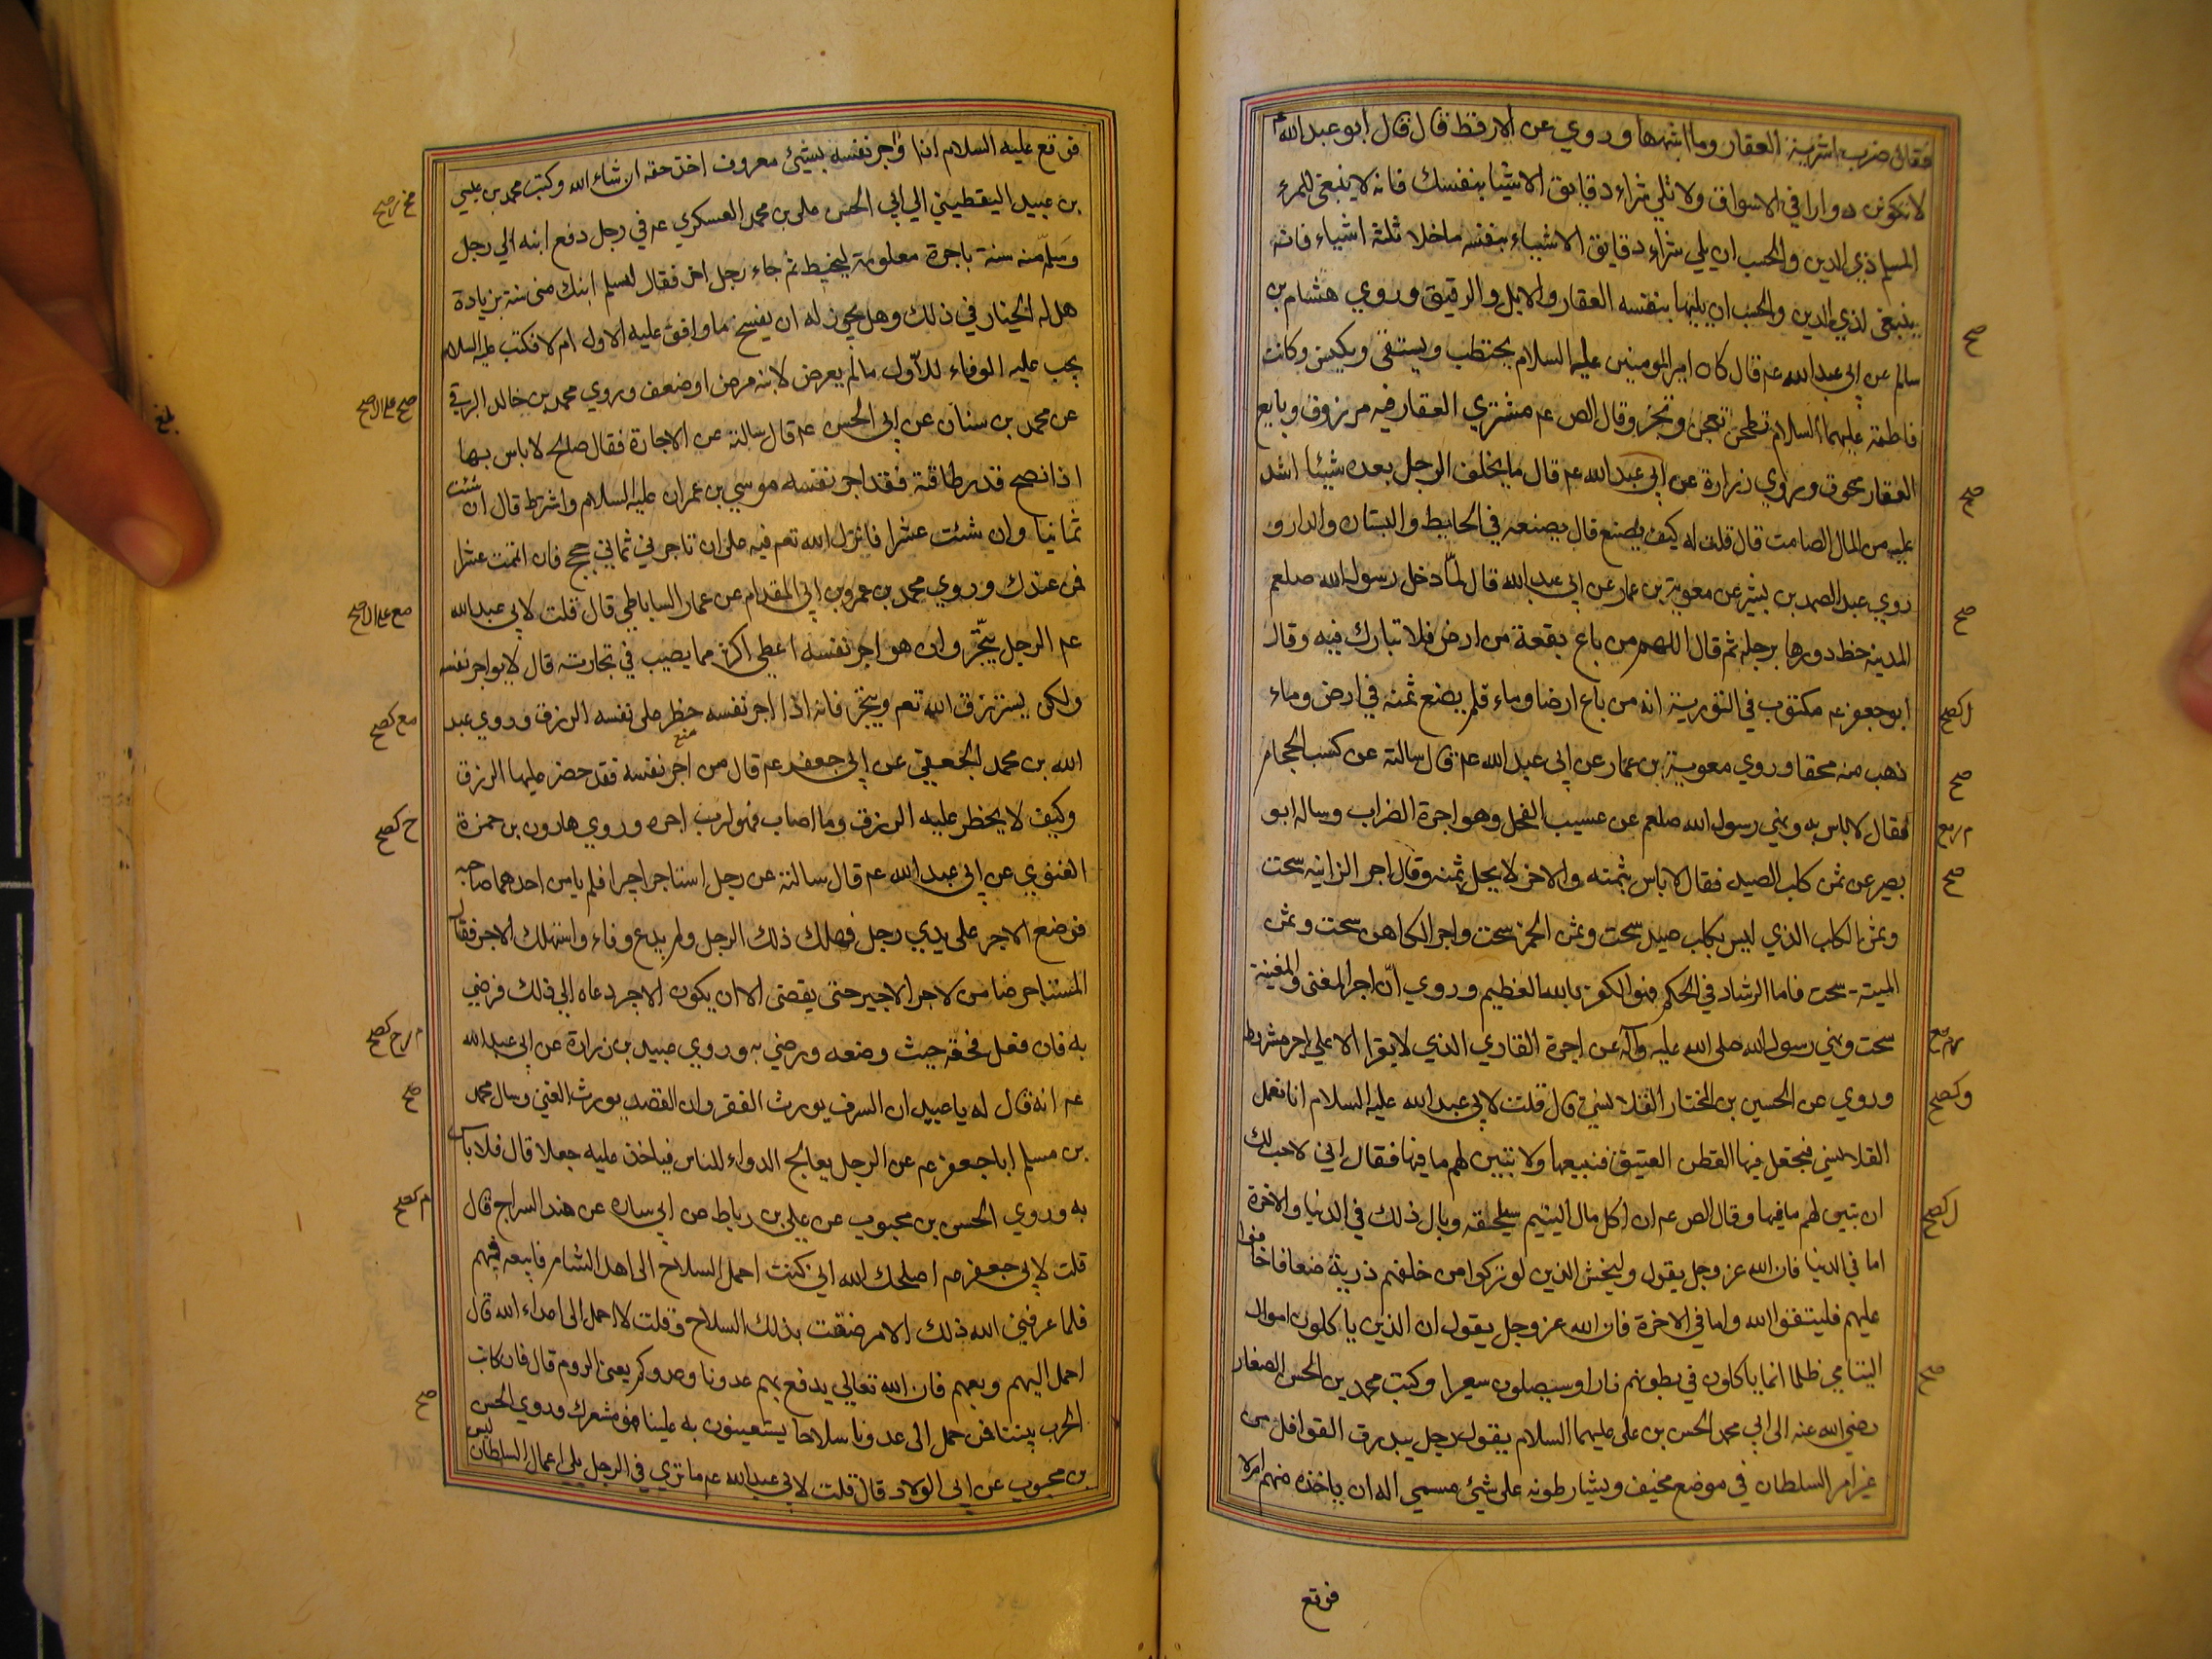 فقال ضرب اشرية العقار وما اشبهها وروي عن الارقط قال قال ابو عبد الله ع
لا تكونن دوارا في الاسواق ولا تلي شراء دقايق الاشيا بنفسك فانه لا ينبغي للمرء
المسلم ذي الدين والحسب ان يلي شراء دقايق الاشياء بنفسه ما خلا ثلثة اشياء فانه
ينبغي لذي الدين والحسب ان يليها بنفسه العقار والابل والرقيق وروي هشام بن
صح
سالم عن ابي عبد الله عم قال كان امير المومنين عليه السلام يحتطب ويستقي ويكنس وكانت
فاطمة عليهما السلام تطحن تعجن وتخبز وقال الص عم مشتري العقار فيه مرزوق وبايع
العقار ممحوق وروي زرارة عن ابي عبد الله عم قال ما يخلف الرجل بعده شيئا اشد
صح
عليه من المال الصامت قال قلت له كيف يصنع قال يصنعه في الحايط والبستان والدار و
روي عبد الصمد بن بشير عن معوية بن عمار عن ابي عبد الله قال لمّا دخل رسول الله صلعم
صح
المدينه خط دورها برجله ثم قال اللهم من باع بقعة من ارض فلا تبارك فيه وقال
ابو جعفر عم مكتوب في التورية انه من باع ارضا وماء فلم يضع ثمنه في ارض وماء
ا كصح
ذهب منه محقا وروي معوية بن عمار عن ابي عبد الله عم قال سالته عن كسب الحجام
صح
فقال لا باس به ونهي رسول الله صلعم عن عسيب الفحل وهو اجرة الضراب وساله ابو
بصير عن ثمن كلب الصيد فقال لا باس بثمنه والاخر لا يحل ثمنه وقال اجر الزانيه سحت
صح
وثمن الكلب الذي ليس بكلب صيد سحت وثمن الخمر سحت واجر الكاهن سحت وثمن
الميته سحت فاما الرشاد في الحكم فهو الكفر بالله العظيم وروي انّ اجر المغني والمغنية
سحت ونهي رسول الله صلى الله عليه وآله عن اجرة القاري الذي لا يقرا الا علي اجر مشترط
وروي عن الحسين بن المختار القلانسي قال قلت لابي عبد الله عليه السلام انا نعمل
و كصح
القلانسي فنجعل فيها القطن العتيق فنبيعها ولا نبين لهم ما فيها فقال اني لاحب لك
ان تبين لهم ما فيها وقال الص عم ان اكل مال اليتيم سيلحقه وبال ذلك في الدنيا والاخرة
ل كصح
اما في الدنيا فان الله عز وجل يقول وليخش الذين لو تركوا من خلفهم ذرية ضعافا خافوا
عليهم فليتقوا الله واما في الاخرة فان الله عز وجل يقول ان الذين ياكلون اموال
اليتامي ظلما انما ياكلون في بطونهم نارا وسيصلون سعيرا وكتب محمد بن الحسن الصفار
صح
رضي الله عنه الى ابي محمد الحسن بن علي عليهما السلام يقول رجل يبدرق القوافل من
غير امر السلطان في موضع مخيف ويشارطونه على شئ مسمي اله ان ياخذه منهم ام لا
فوقع
فوقع عليه السلام اذا واجر نفسه بشئ معروف اخذ حقه ان شاء الله وكتب محمد بن عيسي
بن عبيد اليقطيني الي ابي الحسن علي بن محمد العسكري عم في رجل دفع ابنه الي رجل
وسلّمه منه سنة باجرة معلومة ليخيط ثم جاء رجل اخر فقال له سلم ابنك مني سنة بزيادة
هل له الخيار في ذلك وهل يجوز له ان يفسخ ما وافق عليه الاول ام لا فكتب عليه السلام
يجب عليه الوفاء للاول ما لم يعرض لابنه مرض او ضعف وروي محمد بن خالد البرقي
عن محمد بن سنان عن ابي الحسن عم قال سالته عن الاجارة فقال صالح لا باس بها
اذا نصح قدر طاقته فقد اجر نفسه موسي بن عمران عليه السلام واشترط قال ان شئت
ثمانيا وان شئت عشرا فانزل الله تعم فيه على ان تاجرني ثماني حجج فان اتممت عشرا
فمن عندك وروي محمد بن عمرو بن ابي المقدام عن عمار الساباطي قال قلت لابي عبد الله
عم الرجل يتّجر وان هو اجر نفسه اعطي اكثر مما يصيب في تجارته قال لا يواجر نفسه
ولكن يسترزق الله تعم ويتجر فانه اذا اجر نفسه حظر على نفسه الرزق وروي عبد
الله بن محمد الجعفي عن ابي جعفر عم قال من اجر نفسه فقد حضر عليها الرزق
منع
وكيف لا يحظر عليه الرزق وما اصاب فهو لرب اجره وروي هارون بن حمزة
ح كصح
الغنوي عن ابي عبد الله عم قال سالته عن رجل استاجر اجيرا فلم يامن احدهما صاحبه
فوضع الاجر على يدي رجل فهلك ذلك الرجل ولم يدع وفاء واستهلك الاجر فقال
المستاجر ضامن لاجر الاجير حتى يقضي الا ان يكون الاجر دعاه الي ذلك فرضي
به فان فعل فحقّه حيث وضعه ورضي به وروي عبيد بن زرارة عن ابي عبد الله
عم انه قال له يا عبيد ان السرف يورث الفقر وان القصد يورث الغني وسال محمد
صح
بن مسلم ابا جعفر عم عن الرجل يعالج الدواء للناس فياخذ عليه جعلا قال فلا باس
به وروي الحسن بن محبوب عن علي بن رباط عن ابي ساره عن هند السراج قال
م كصح
قلت لابي جعفر عم اصلحك الله اني كنت احمل السلاح الى اهل الشام فابيعه فيهم
فلما عرفني الله ذلك الامر ضقت بذلك السلاح وقلت لا احمل الى اعداء الله قال
احمل اليهم وبعهم فان الله تعالي يدفع بهم عدونا وعدوكم يعني الروم قال فان كانت
الحرب بيننا فمن حمل الى عدونا سلاحا يستعينون به علينا فهو مشرك وروي الحسن
صح
بن محبوب عن ابي الولاد قال قلت لابي عبد الله عم ما تري في الرجل يلي اعمال السلطان ليس